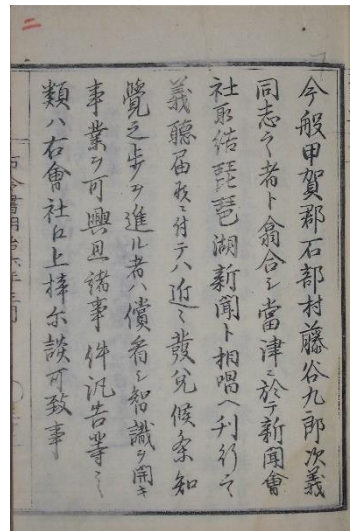 今般甲賀郡石部村藤谷九郎次義
同志之者ト翕合シ當津ニ於テ新聞會
社取結琵琶湖新聞ト相唱ヘ刊行之
義聽届候ニ付テハ近々發兌候条知
覺之歩ヲ進ル者ハ償看シ智識ヲ開キ
事業ヲ可興且諸事件汎告等之
類ハ右會社口上捧尓談可致事
二